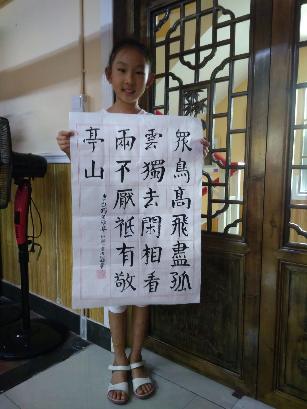 衆鳥高飛盡孤
雲獨去閑相看
兩不厭祗有敬
亭山